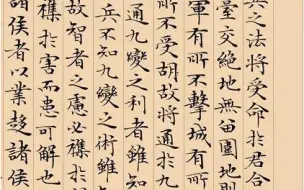 兵之法將受命於君合
交絕地無畄圍地則
軍有所不擊城有所
所不受胡故將通於九
通九變之利者雖知
兵不知九變之術雖
故智者之慮必襍於
襍於害而患可解也
諸侯者以業趍諸侯